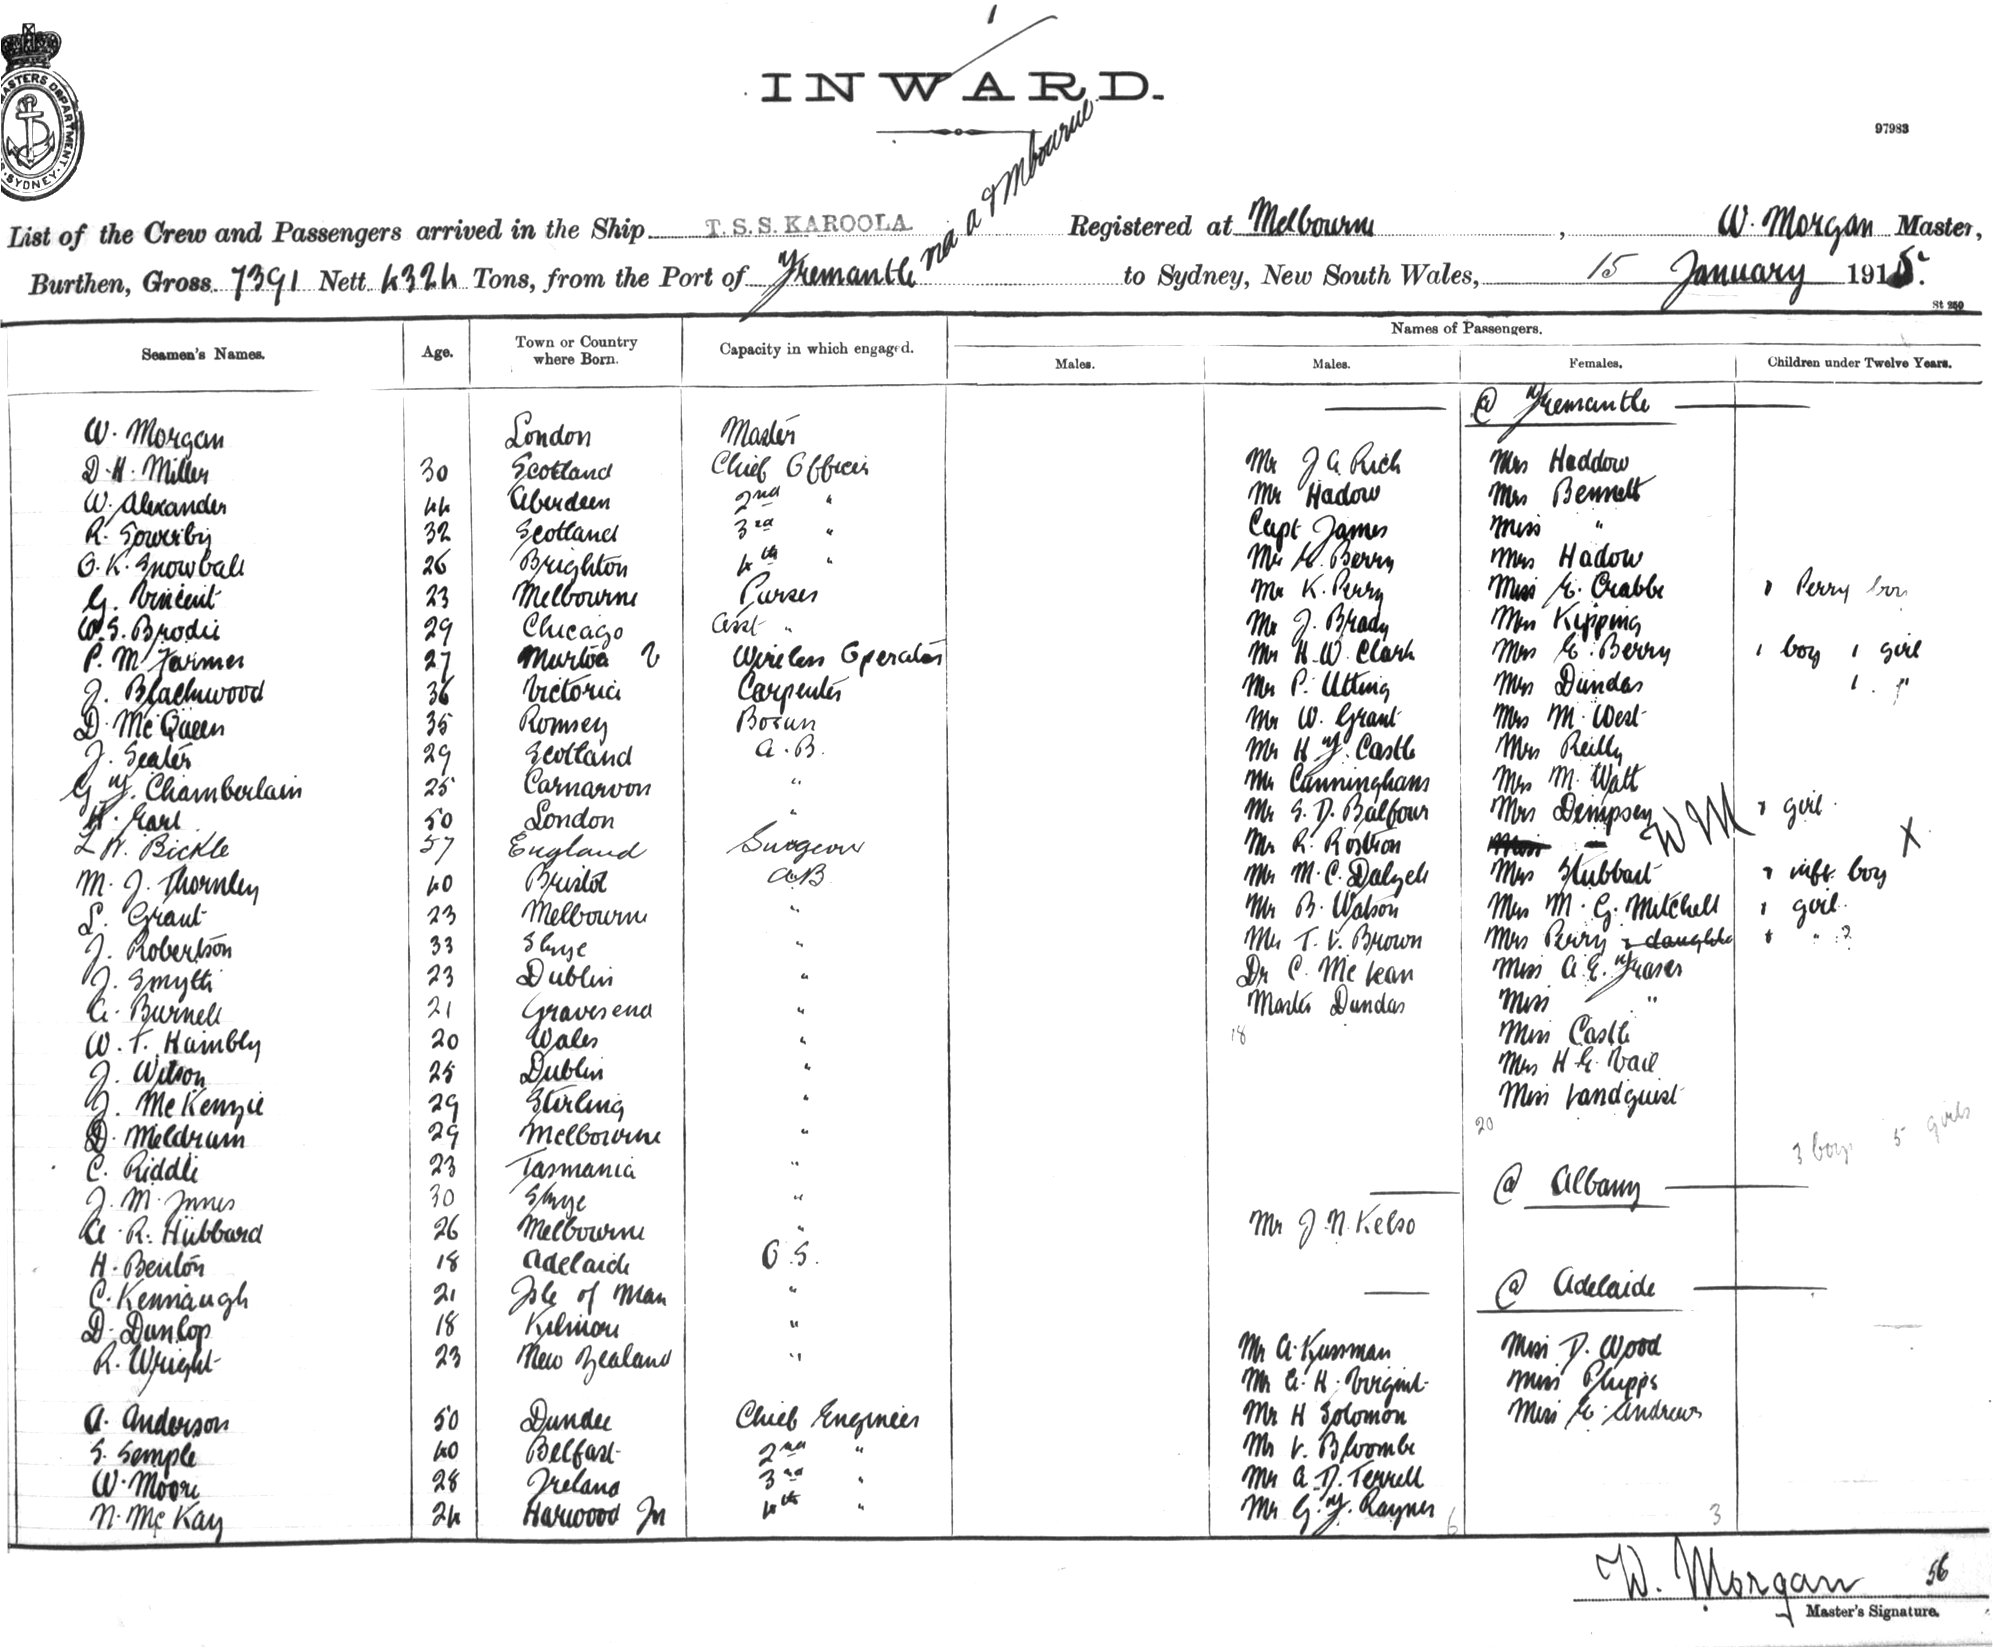 INWARD.
97983
MASTERS DEPARTMENT
SYDNEY
List of the Crew and Passengers arrived in the Ship T.S.S. KAROOLA Registered at Melbourne, W. Morgan Master,
Burthen, Gross 7391 Nett 4324 Tons, from the Port of Fremantle via A & Mbourne to Sydney, New South Wales, 15 January 1915.
St 250
Names of Passengers.
Seamen's Names. Age. Town or Country where Born. Capacity in which engaged. Males. Males. Females. Children under Twelve Years.
@ Fremantle
W. Morgan London Master
D. H. Miller 30 Scotland Chief Officer Mr J A Rich Mrs Haddow
W. Alexander 44 Aberdeen 2nd " Mr Hadow Mrs Bennett
R. Sowerby 32 Scotland 3rd " Capt James Miss "
O. K. Snowball 26 Brighton 4th " Mr E. Berry Mrs Hadow
G. Vincent 23 Melbourne Purser Mr K. Perry Miss E. Crabbe 1 Perry boy
W. S. Brodie 29 Chicago Asst " Mr J. Brady Mrs Kipping
P. M. Farmer 27 Murtoa V Wireless Operator Mr H. W. Clark Mrs E. Berry 1 boy 1 girl
J. Blackwood 36 Victoria Carpenter Mr P. Utting Mrs Dundas 1 "
D. McQueen 35 Romsey Bosun Mr W. Grant Mrs M. West
J. Seater 29 Scotland A.B. Mr H F. Castle Mrs Reilly
G F. Chamberlain 25 Carnarvon " Mr Cunningham Mrs M. Watt
H. Earl 50 London " Mr S. D. Balfour Mrs Dempsey 1 girl.
L W. Bickle 57 England Surgeon Mr R. Rostron Miss " WM X
M. J. Thornley 40 Bristol A.B Mr M. C. Dalzell Mrs Stubbart 1 inft boy
L. Grant 23 Melbourne " Mr B. Watson Mrs M. G. Mitchell 1 girl.
J. Robertson 33 Skye " Mr T. V. Brown Mrs Perry & daughter 1 " ?
J. Smyth 23 Dublin " Dr C. McLean Miss A. E. Fraser
A. Burnell 21 Gravesend " Master Dundas Miss "
W. T. Hambly 20 Wales " 18 Miss Castle
J. Wilson 25 Dublin " Mrs H E. Vail
J. McKenzie 29 Stirling " Miss Landquist
D. Meldrum 29 Melbourne " 20
C. Riddle 23 Tasmania " 3 boys 5 girls
@ Albany
J. M. Innes 30 Skye "
A. R. Hubbard 26 Melbourne " Mr J. N. Kelso
H. Benton 18 Adelaide O.S.
@ Adelaide
C. Kennaugh 21 Isle of Man "
D. Dunlop 18 Kilmore "
R. Wright 23 New Zealand " Mr A. Kussman Miss D. Wood
Mr A. H. Virgint Miss Phipps
A. Anderson 50 Dundee Chief Engineer Mr H Solomon Miss E. Andrews
S. Semple 40 Belfast 2nd " Mr V. Bloombe
W. Moore 28 Ireland 3rd " Mr A. D. Terrell
N. McKay 24 Harwood 4th " Mr G. F. Rayner 6 3
W. Morgan 56
Master's Signature.